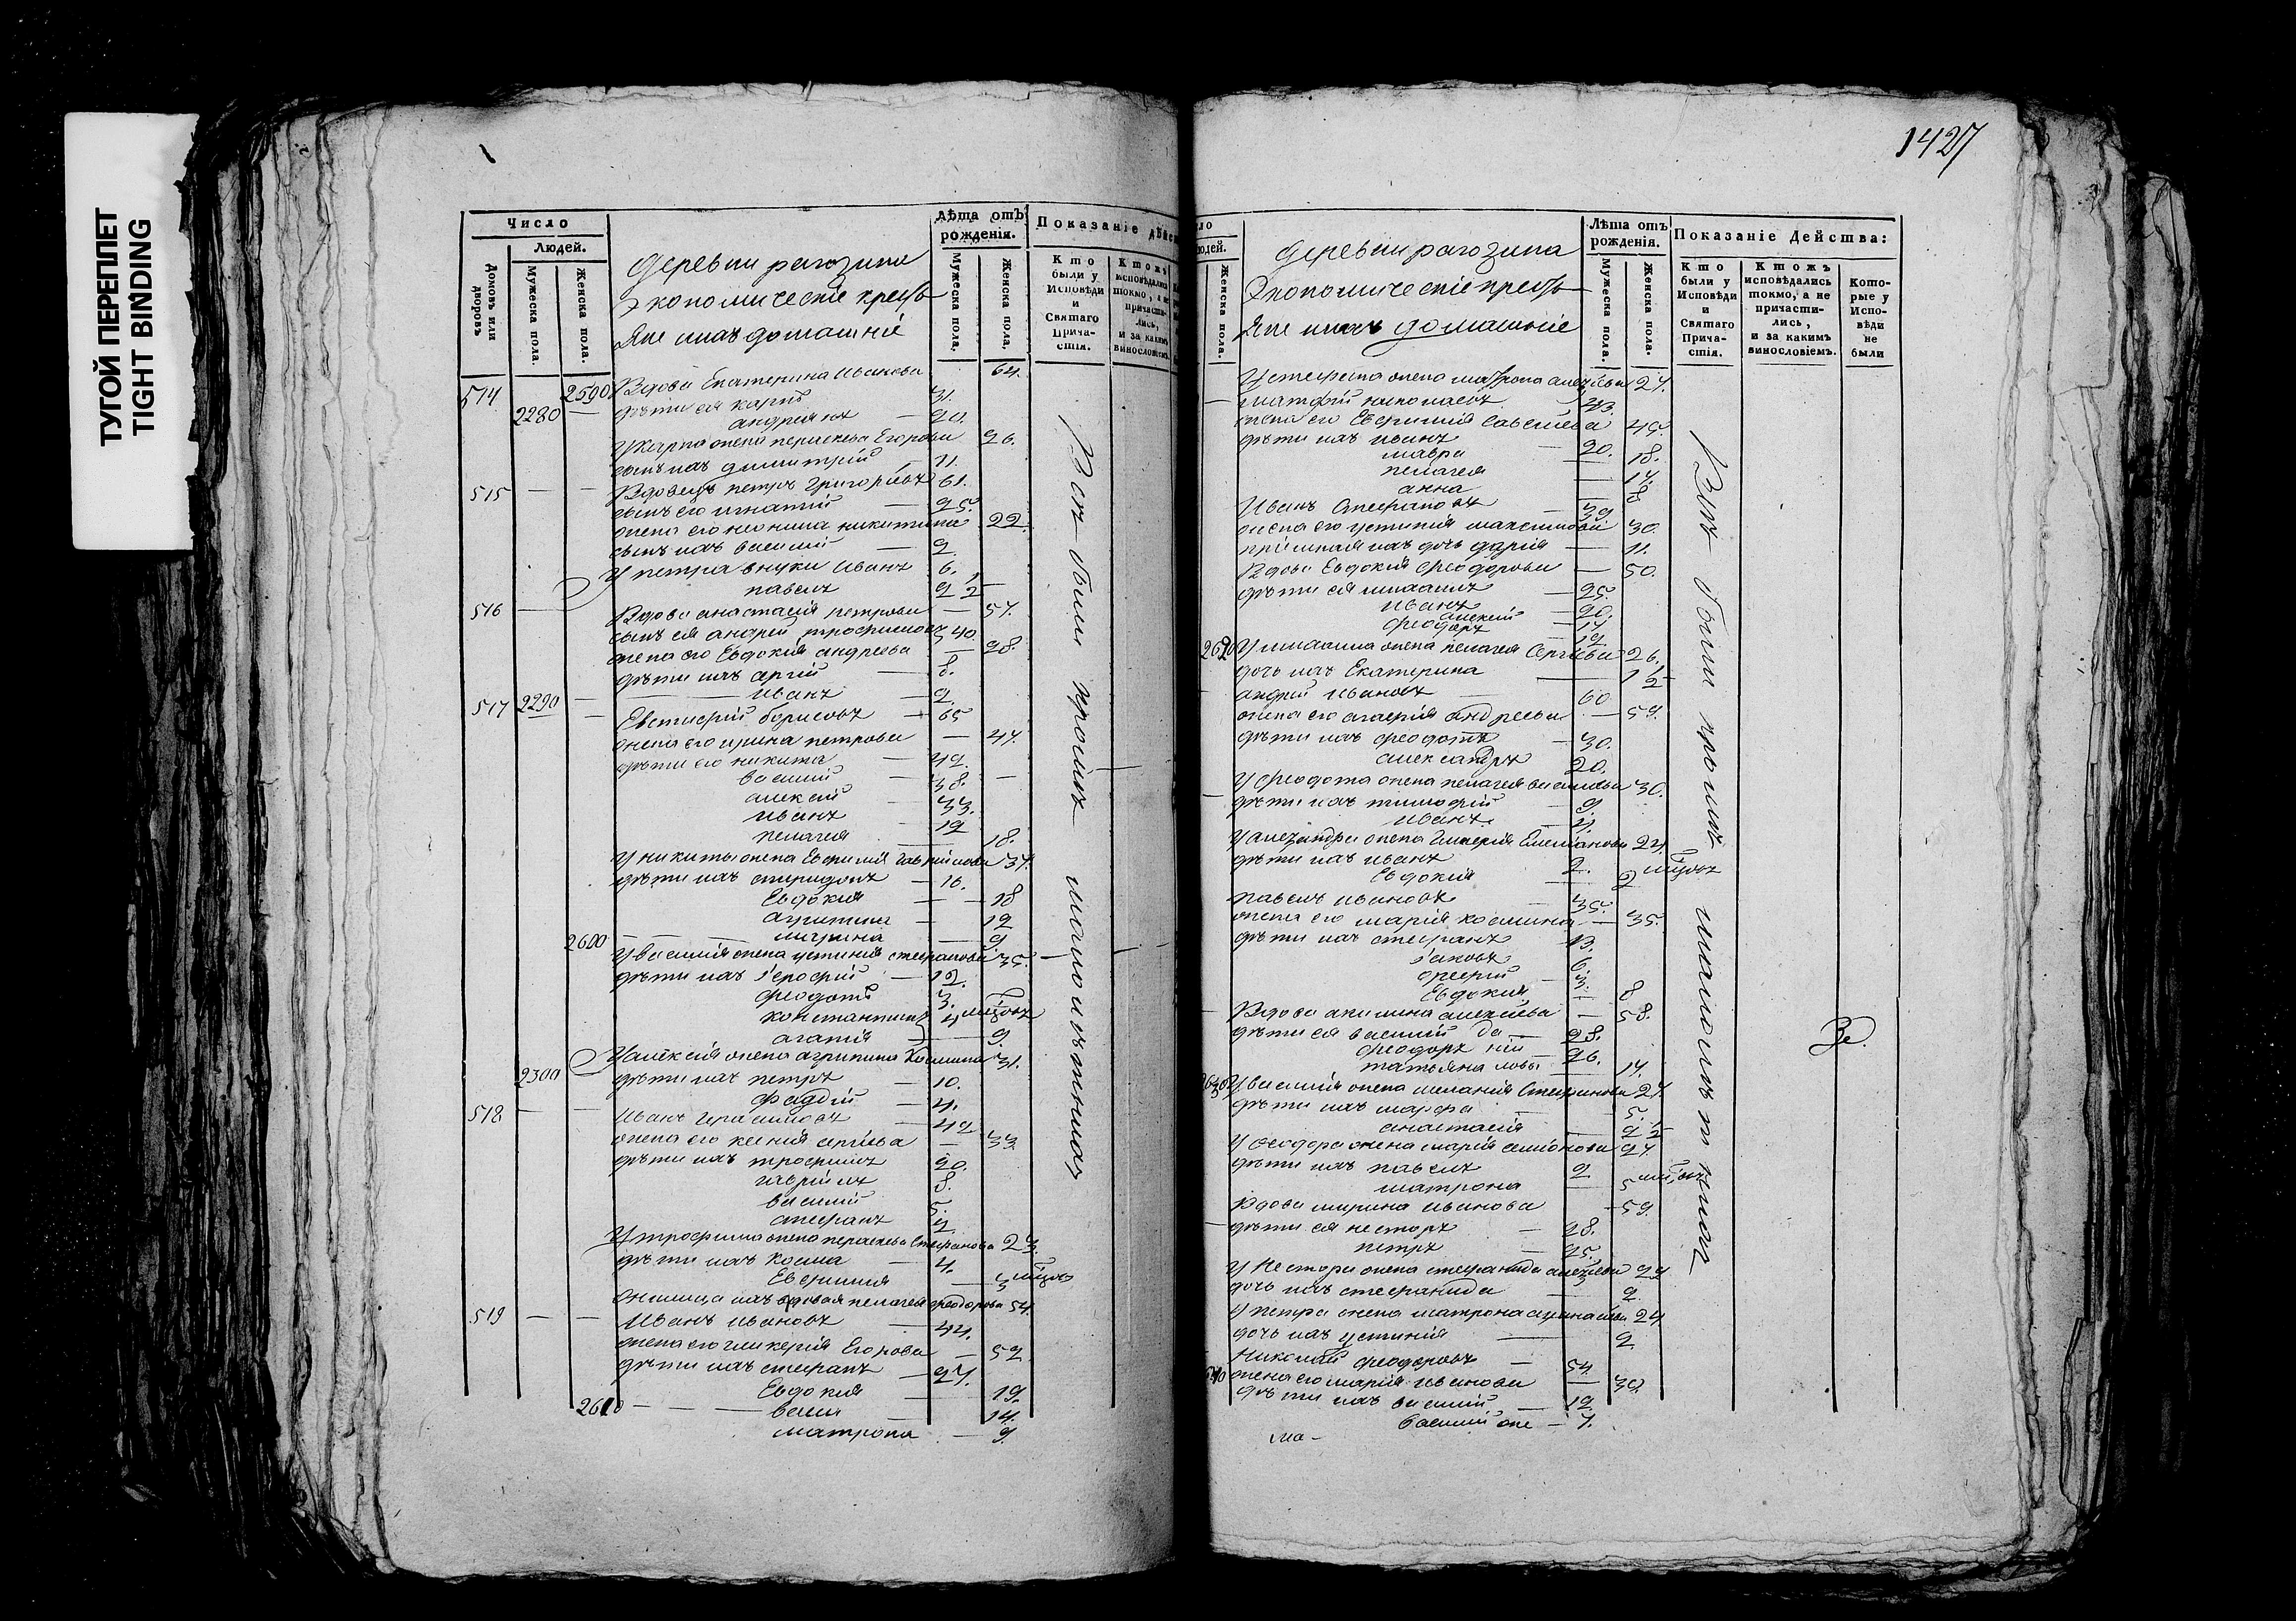 ТУГОЙ ПЕРЕПЛЕТ
TIGHT BINDING
Число
Людей.
Домовъ или дворовъ
Мужеска пола.
Женска пола.
деревни рагозина
Экономическіе кресть
яне ихъ домашніе
Лѣта отъ рожденія.
Мужеска пола,
Женска пола.
Показаніе
Кто были у Исповѣди и Святаго Прича- стія.
514 2590 Вдова Екатерина Иванова 64.
дѣти ея карпъ 31.
2280 — андреянъ — 20.
У карпа жена параскева Егорова 26.
сынъ ихъ димитрій — 11.
515 — — Вдовецъ петръ григорьевъ 61.
сынъ его игнатій — 25.
жена его неонила никитина 22.
сынъ ихъ василій — 2
У петра внуки Иванъ 6.
павелъ 2 1/2
516 — Вдова анастасія петрова — 57.
сынъ ея андрей трофимовъ 40.
жена его Евдокія андреева — 28.
дѣти ихъ сергій — 8.
Иванъ — 2
517 2290 — Евстифій борисовъ — 65
жена его ирина петрова — 47.
дѣти его никита — 42.
василій — 38.
алексій — 33.
иванъ — 19
пелагея — 18.
У никиты жена Евфимія гавриилова 37.
дѣти ихъ спиридонъ — 16.
Евдокія — — 18
агрипина — 12
2600 — марина — 9
У василія жена устинія стефанова 35.
дѣти ихъ — 12.
феодотъ 3.
константинъ 4 мѣсяцовъ
агафія — 9.
У алексія жена агрипина Космина 31.
2300 дѣти ихъ петръ — 10.
фаддій — 4.
518 — — Иванъ герасимовъ — 42
жена его ксенія сергіева — 33
дѣти ихъ трофимъ 20.
гавріилъ 8.
василій 5.
стефанъ 2
У трофима жена параскева Стефанова 23.
дѣти ихъ Косма — 4.
Евфимія — 3 мѣсяцовъ
ихъ вдовая пелагея феодорова 54.
519 — — Иванъ ивановъ — 44.
жена его гликерія Егорова — 52
дѣти ихъ стефанъ — 27.
Евдокія — 19.
2610 — — — васса — 14.
матрона — 9.
Всѣ были кромѣ малолѣтныхъ
1427
Женска пола.
деревни рагозина
Экономическіе кресть
яне ихъ домашніе
Лѣта отъ рожденія.
Мужеска пола.
Женска пола.
Показаніе Дейсшва:
Кто были у Исповѣди и Святаго Прича- стія.
Ктожъ исповѣдались токмо, а не причасти- лись, и за какимъ винословіемъ.
Кото- рые у Испо- вѣди не были
У стефана жена матрона алексіева 27.
матфій николаевъ 43.
жена его Евфимія Савельева 45.
дѣти ихъ иванъ — 20.
мавра — 18.
пелагея — 14.
анна — 8
Иванъ Стефановъ — 39
жена его устинія максимова 30.
дочь дарія — 11.
Вдова Евдокія феодорова — 50.
дѣти ея михаилъ — 25.
иванъ — 20.
алексій — 17
феодоръ — 12
2620 У михаила жена пелагея Сергіева 26.
дочь ихъ Екатерина — 1/2
андрей ивановъ 60
жена его андреева — 59.
дѣти ихъ феодотъ — 30.
александръ 20.
У феодота жена пелагея васильева 30.
дѣти ихъ тимофій — 9
иванъ.
У александра жена гликерія Емельянова 24.
дѣти ихъ иванъ 2.
Евдокія — 2 мѣсяцовъ
павелъ ивановъ — 35.
жена его марія космина — 35.
дѣти ихъ стефанъ 13.
Іаковъ — 6.
3.
Евдокія — 8
Вдова акилина алексіева — 58.
дѣти ея василій да — 28.
феодоръ — 26.
татьяна — 14.
2630 У василія жена меланія Стефанова 27.
дѣти ихъ марфа — 5.
анастасія — 2 1/2
У феодора жена марія симіонова 27.
дѣти ихъ павелъ 2
матрона — 5 мѣсяцовъ
Вдова марина иванова — 59.
дѣти ея несторъ — 28.
петръ — 25.
У Нестора жена стефанида алексіева 22
дочь ихъ стефанида — 2
У петра жена матрона 24
дочь ихъ устинія — 2
Николай феодоровъ — 54
жена его марія иванова — 30.
дѣти ихъ василій — 12
василій же — 7.
ма-
Всѣ были кромѣ малолѣтныхъ